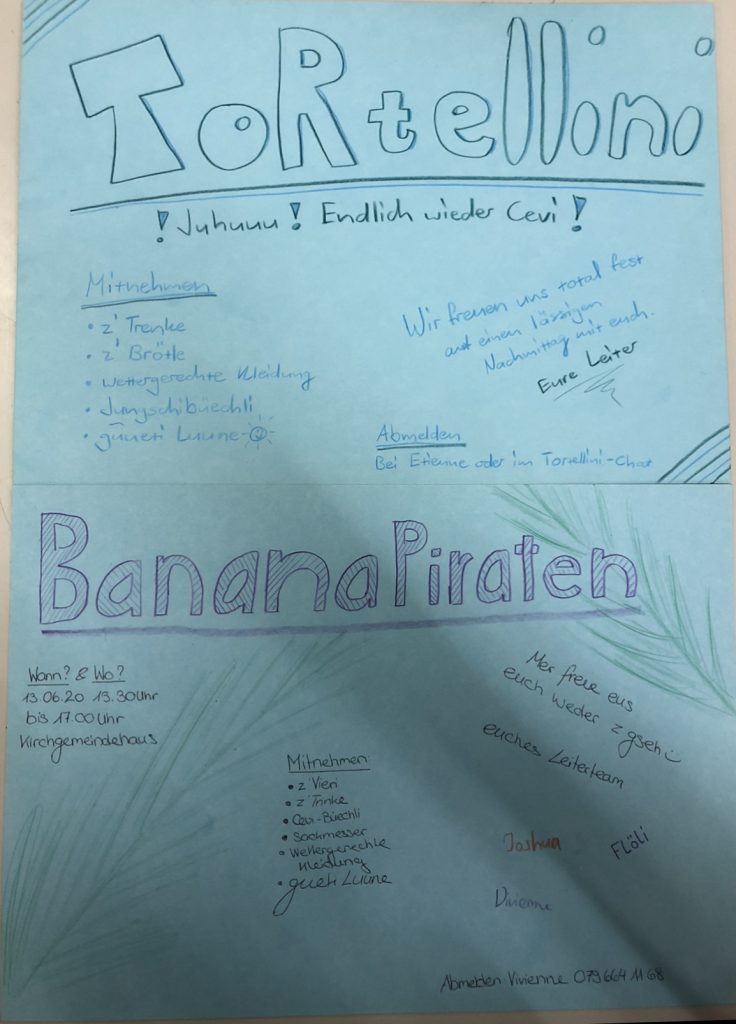 ToRtellini
! Juhuuu ! Endlich wieder Cevi !
Mitnehmen
• z'Trenke
• z'Brötle
• wettergerechte Kleidung
• Jungschibüechli
• güüeti Luune
Wir freuen uns total fest
auf einen lässigen
Nachmittag mit euch.
Eure Leiter
Abmelden
Bei Etienne oder im Tortellini-Chat
BananaPiraten
Wann? & Wo?
13.06.20 13.30Uhr
bis 17.00Uhr
Kirchgemeindehaus
Mer freue eus
euch weder z'gseh
euches Leiterteam
Mitnehmen:
• z'Vieri
• z'Trinke
• Cevi-Büechli
• Sackmesser
• Wettergerechte
Kleidung
• gueti Luune
Joshua
Flöli
Vivienne
Abmelden Vivienne 079 664 11 68